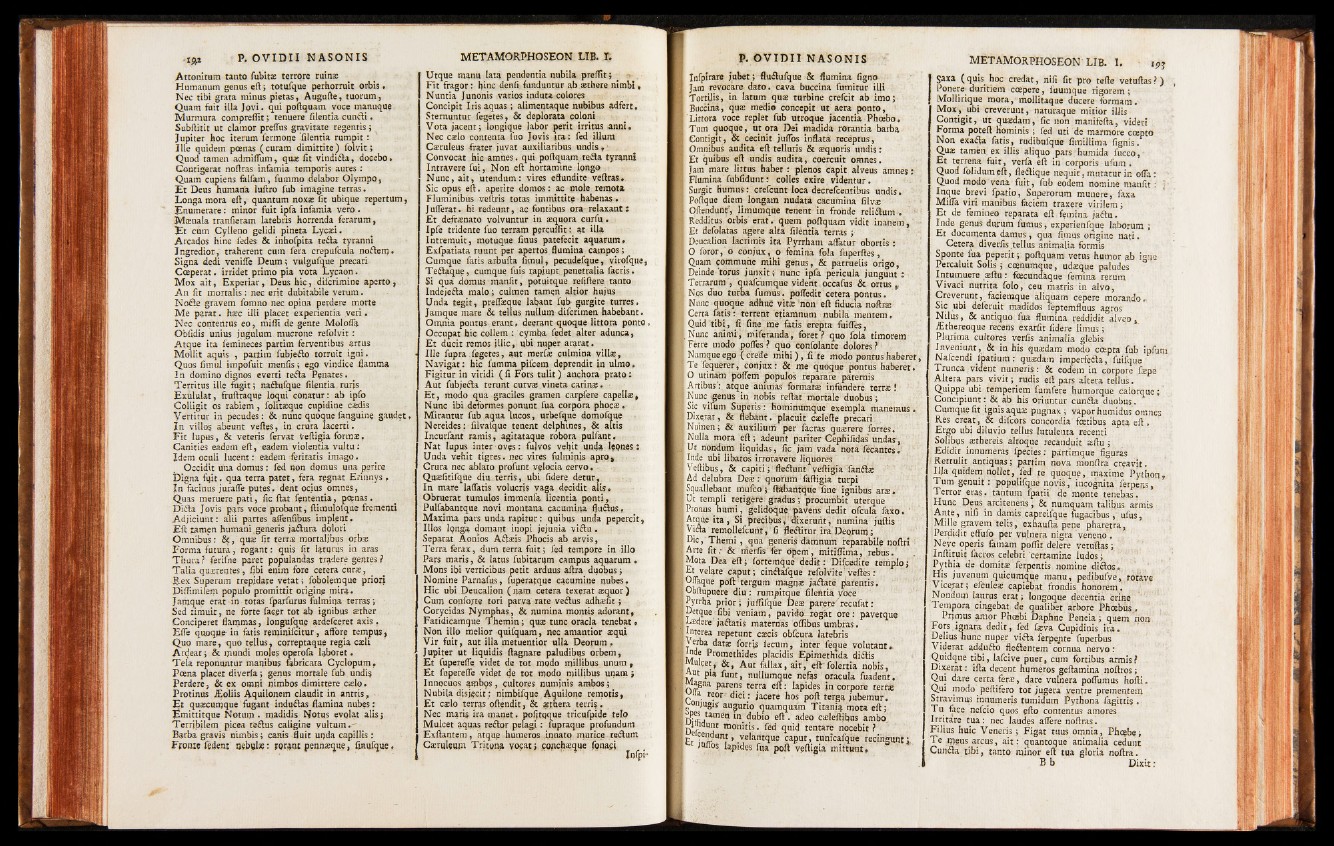 192 P. OVIDII NASONIS
Attonitum tanto subitæ terrore ruinæ
Humanum genus est; totusque perhorruit orbis.
Nec tibi grata minus pietas, Auguste, tuorum,
Quam fuit illa Jovi. qui postquam voce manuque
Murmura compressit; tenuere silentia cuncti.
Substitit ut clamor pressus gravitate regentis;
Jupiter hoc iterum sermone silentia rumpit:
Ille quidem pœnas (curam dimittite) solvit;
Quod tamen admissum, quæ sit vindicta, docebo.
Contigerat nostras infamia temporis aures:
Quam cupiens falsam, summo delabor Olympo,
Et Deus humana lustro sub imagine terras.
Longa mora est, quantum noxæ sit ubique repertum,
Enumerare: minor fuit ipsa infamia vero.
Mænala transieram latebris horrenda ferarum,
Et cum Cylleno gelidi pineta Lycæi.
Arcados hinc sedes & inhospita tecta tyranni
Ingredior, traherent cum sera crepuscula noctem.
Signa dedi venisse Deum; vulgusque precari
Cœperat. irridet primo pia vota Lycaon.
Mox ait, Experiar, Deus hic, discrimine aperto,
An sit mortalis: nec erit dubitabile verum.
Nocte gravem somno nec opina perdere morte
Me parat. hæc illi placet experientia veri.
Nec contentus eo, missi de gente Molossa
Obsidis unius jugulum mucrone resolvit:
Atque ita semineces partim ferventibus artus
Mollit aquis, partim subjecto torruit igni.
Quos simul impofuit mensis; ego vindice flamma
In domino dignos everti tecta Penates.
Territus ille fugit; nactusque silentia ruris
Exululat, frustraque loqui conatur: ab ipso
Colligit os rabiem, solitæque cupidine cædis
Vertitur in pecudes: & nunc quoque sanguine gaudet.
In villos abeunt vestes, in crura lacerti.
Fit lupus, & veteris servat vestigia formæ.
Canities eadem est, eadem violentia vultu:
Idem oculi lucent: eadem feritatis imago.
Occidit una domus: sed non domus una perire
Digna fuit. qua terra patet, fera regnat Erinnys.
In facinus jurasse putes. dent ocius omnes,
Quas meruere pati, sic stat sententia, pœnas.
Dicta Jovis pars voce probant, stimulosque frementi
Adjiciunt: alii partes assensibus implent.
Est tamen humani generis jactura dolori
Omnibus: &, quæ sit terræ mortalibus orbæ
Forma futura, rogant: quis sit laturus in aras
Thura? ferisne paret populandas tradere gentes?
Talia quærentes, sibi enim fore cetera curæ,
Rex Superum trepidare vetat; sobolemque priori
Dissimilem populo promittit origine mira.
Jamque erat in totas sparsurus fulmina terras;
Sed timuit, ne forte sacer tot ab ignibus æther
Conciperet flammas, longusque ardesceret axis.
Esse quoque in fatis reminiscitur, affore tempus,
Quo mare, quo tellus, correptaque regia cæli
Ardeat; & mundi moles operosa laboret.
Tela reponuntur manibus fabricata Cyclopum.
Pœna placet diversa; genus mortale sub undis
Perdere, & ex omni nimbos dimittere cælo.
Protinus Æoliis Aquilonem claudit in antris,
Et quæcumque fugant inductas flamina nubes:
Emittitque Notum. madidis Notus evolat alis;
Terribilem picea tectus caligine vultum.
Barba gravis nimbis; canis fluit unda capillis:
Fronte sedent nebulæ: rorant pennæque, sinusque.
METAMORPHOSEON LIB. I.
Utque manu lata pendentia nubila pressit;
Fit fragor: hinc densi funduntur ab æthere nimbi,
Nuntia Junonis varios induta colores
Concipit Iris aquas; alimentaque nubibus adfert.
Sternuntur segetes, & deplorata coloni
Vota jacent; longique labor perit irritus anni.
Nec cælo contenta suo Jovis ira: sed illum
Cæruleus frater juvat auxiliaribus undis.
Convocat hic amnes. qui postquam tecta tyranni
Intravere sui, Non est hortamine longo
Nunc, ait, utendum: vires effundite vestras.
Sic opus est. aperite domos: ac mole remota
Fluminibus vestris totas immittite habenas.
Jusserat. hi redeunt, ac fontibus ora relaxant:
Et defrænato volvuntur in æquora cursu.
Ipse tridente suo terram percussit: at illa
Intremuit, motuque sinus patefecit aquarum.
Exspatiata ruunt per apertos flumina campos;
Cumque satis arbusta simul, pecudesque, virosque,
Tectaque, cumque suis rapiunt penetralia sacris.
Si qua domus mansit, potuitque resistere tanto
Indejecta malo; culmen tamen altior hujus
Unda tegit, pressæque labant sub gurgite turres.
Jamque mare & tellus nullum discrimen habebant.
Omnia pontus erant, deerant quoque littora ponto.
Occupat hic collem: cymba sedet alter adunca,
Et ducit remos illic, ubi nuper ararat.
Ille supra segetes, aut mersæ culmina villæ,
Navigat: hic summa piscem deprendit in ulmo.
Figitur in viridi (si Fors tulit) anchora prato:
Aut subjecta terunt curvæ vineta carinæ.
Et, modo qua graciles gramen carpsere capellæ,
Nunc ibi deformes ponunt sua corpora phocæ.
Mirantur sub aqua lucos, urbesque domosque
Nereides: silvasque tenent delphines, & altis
Incursant ramis, agitataque robora pulsant.
Nat lupus inter oves: fulvos vehit unda leones:
Unda vehit tigres. nec vires fulminis apro,
Crura nec ablato prosunt velocia cervo.
Quæsitisque diu terris, ubi sidere detur,
In mare lassatis volucris vaga decidit alis.
Obruerat tumulos immensa licentia ponti,
Pulsabantque novi montana cacumina fluctus.
Maxima pars unda rapitur: quibus unda pepercit,
Illos longa domant inopi jejunia victu.
Separat Aonios Actæis Phocis ab arvis,
Terra ferax, dum terra fuit; sed tempore in illo
Pars maris, & latus subitarum campus aquarum.
Mons ibi verticibus petit arduus astra duobus;
Nomine Parnasus, superatque cacumine nubes.
Hic ubi Deucalion (nam cetera texerat æquor)
Cum consorte tori parva rate vectus adhæsit;
Corycidas Nymphas, & numina montis adorant,
Fatidicamque Themin; quæ tunc oracla tenebat.
Non illo melior quisquam, nec amantior æqui
Vir fuit, aut illa metuentior ulla Deorum.
Jupiter ut liquidis stagnare paludibus orbem,
Et superesse videt de tot modo millibus unum,
Et superesse videt de tot modo millibus unam;
Innocuos ambos, cultores numinis ambos;
Nubila disjecit: nimbisque Aquilone remotis,
Et cælo terras ostendit, & æthera terris.
Nec maris ira manet. positoque tricuspide telo
Mulcet aquas rector pelagi: supraque profundum
Exstantem, atque humeros innato murice tectum
Cæruleum Tritona vocat; conchæque sonaci
Inspi-
P. OVIDII NASONIS
Inspirare jubet; fluctusque & flumina signo
Jam revocare dato. cava buccina sumitur illi
Tortilis, in latum quæ turbine crescit ab imo;
Buccina, quæ medio concepit ut aera ponto,
Littora voce replet sub utroque jacentia Phœbo.
Tum quoque, ut ora Dei madida rorantia barba
Contigit, & cecinit jussos inflata receptus,
Omnibus audita est telluris & æquoris undis:
Et quibus est undis audita, coercuit omnes.
Jam mare littus habet: plenos capit alveus amnes:
Flumina subsidunt: colles exire videntur.
Surgit humus: crescunt loca decrescentibus undis.
Postque diem longam nudata cacumina silvæ
Ostendunt, limumque tenent in fronde relictum.
Redditus orbis erat. quem postquam vidit inanem,
Et desolatas agere alta silentia terras;
Deucalion lacrimis ita Pyrrham affatur obortis:
O soror, o conjux, o femina sola superstes,
Quam commune mihi genus, & patruelis origo,
Deinde torus junxit; nunc ipsa pericula jungunt:
Terrarum, quascumque vident occasus & ortus,
Nos duo turba sumus. possedit cetera pontus.
Nunc quoque adhuc vitæ non est fiducia nostræ
Certa satis: terrent etiamnum nubila mentem.
Quid tibi, si sine me fatis erepta fuisses,
Nunc animi, miseranda, foret? quo sola timorem
Ferre modo posses? quo consolante dolores?
Namque ego (crede mihi), si te modo pontus haberet,
Te sequerer, conjux: & me quoque pontus haberet.
O utinam possem populos reparare paternis
Artibus: atque animas formatæ infundere terræ!
Nunc genus in nobis restat mortale duobus;
Sic visum Superis: hominumque exempla manemus.
Dixerat, & flebant. placuit cæleste precari
Numen; & auxilium per sacras quærere sortes.
Nulla mora est; adeunt pariter Cephisidas undas,
Ut nondum liquidas, sic jam vada nota secantes.
Inde ubi libatos irroravere liquores
Vestibus, & capiti; flectunt vestigia sanctæ
Ad delubra Deæ: quorum fastigia turpi
Squallebant musco; stabantque sine ignibus aræ.
Ut templi tetigere gradus; procumbit uterque
Pronus humi, gelidoque pavens dedit oscula saxo.
Atque ita, Si precibus, dixerunt, numina justis
Victa remollescunt, si flectitur ira Deorum;
Dic, Themi, qua generis damnum reparabile nostri
Arte sit: & mersis fer opem, mitissima, rebus.
Mota Dea est; sortemque dedit: Discedite templo;
Et velate caput; cinctasque resolvite vestes:
Ossaque post tergum magnæ jactate parentis.
Obstupuere diu: rumpitque silentia voce
Pyrrha prior; jussisque Deæ parere recusat:
Detque sibi veniam, pavido rogat ore: pavetque
Lædere jactatis maternas ossibus umbras.
Interea repetunt cæcis obscura latebris
Verba datæ sortis secum, inter seque volutant.
Inde Promethides placidis Epimethida dictis
Mulcet, &, Aut fallax, ait, est solertia nobis,
Aut pia sunt, nullumque nefas oracula suadent.
Magna parens terra est: lapides in corpore terræ
Ossa reor dici: jacere hos post terga jubemur.
Conjugis augurio quamquam Titania mota est;
Spes tamen in dubio est. adeo cælestibus ambo
Diffidunt monitis. sed quid tentare nocebit?
Descendunt, velantque caput, tunicasque recingunt;
Et jussos lapides sua post vestigia mittunt.
METAMORPHOSEON LIB. I. 193
Saxa (quis hoc credat, nisi sit pro teste vetustas?)
Ponere duritiem cœpere, suumque rigorem;
Mollirique mora, mollitaque ducere formam.
Mox, ubi creverunt, naturaque mitior illis
Contigit, ut quædam, sic non manifesta, videri
Forma potest hominis; sed uti de marmore cœpto
Non exacta satis, rudibusque simillima signis.
Quæ tamen ex illis aliquo pars humida succo,
Et terrena fuit, versa est in corporis usum.
Quod solidum est, flectique nequit, mutatur in ossa:
Quod modo vena fuit, sub eodem nomine mansit:
Inque brevi spatio, Superorum munere, saxa
Missa viri manibus faciem traxere virilem;
Et de femineo reparata est femina jactu.
Inde genus durum sumus, experiensque laborum;
Et documenta damus, qua simus origine nati.
Cetera diversis tellus animalia formis
Sponte sua peperit; postquam vetus humor ab igne
Percaluit Solis; cœnumque, udæque paludes
Intumuere æstu: fœcundaque semina rerum
Vivaci nutrita solo, ceu matris in alvo,
Creverunt, faciemque aliquam cepere morando.
Sic ubi deseruit madidos septemfluus agros
Nilus, & antiquo sua flumina reddidit alveo,
Æthereoque recens exarsit sidere limus;
Plurima cultores versis animalia glebis
Inveniunt, & in his quædam modo cœpta sub ipsum
Nascendi spatium: quædam imperfecta, suisque
Trunca vident numeris: & eodem in corpore sæpe
Altera pars vivit; rudis est pars altera tellus.
Quippe ubi temperiem sumsere humorque calorque;
Concipiunt: & ab his oriuntur cuncta duobus.
Cumque sit ignis aquæ pugnax; vapor humidus omnes
Res creat, & discors concordia fœtibus apta est.
Ergo ubi diluvio tellus lutulenta recenti
Solibus æthereis altoque recanduit æstu;
Edidit innumeras species: partimque figuras
Rettulit antiquas; partim nova monstra creavit.
Illa quidem nollet, sed te quoque, maxime Python,
Tum genuit: populisque novis, incognita serpens,
Terror eras. tantum spatii de monte tenebas.
Hunc Deus arcitenens, & numquam talibus armis
Ante, nisi in damis capreisque fugacibus, usus,
Mille gravem telis, exhausta pene pharetra,
Perdidit effuso per vulnera nigra veneno.
Neve operis famam possit delere vetustas;
Instituit sacros celebri certamine ludos;
Pythia de domitæ serpentis nomine dictos.
His juvenum quicumque manu, pedibusve, rotave
Vicerat; esculeæ capiebat frondis honorem.
Nondum laurus erat; longoque decentia crine
Tempora cingebat de qualibet arbore Phœbus.
Primus amor Phœbi Daphne Peneia; quem non
Fors ignara dedit, sed sæva Cupidinis ira.
Delius hunc nuper victa serpente superbus
Viderat adducto flectentem cornua nervo:
Quidque tibi, lascive puer, cum fortibus armis?
Dixerat: ista decent humeros gestamina nostros;
Qui dare certa feræ, dare vulnera possumus hosti.
Qui modo pestifero tot jugera ventre prementem
Stravimus innumeris tumidum Pythona sagittis.
Tu face nescio quos esto contentus amores
Irritare tua: nec laudes assere nostras.
Filius huic Veneris; Figat tuus omnia, Phœbe;
Te meus arcus, ait: quantoque animalia cedunt
Cuncta tibi, tanto minor est tua gloria nostra.
B b Dixit: